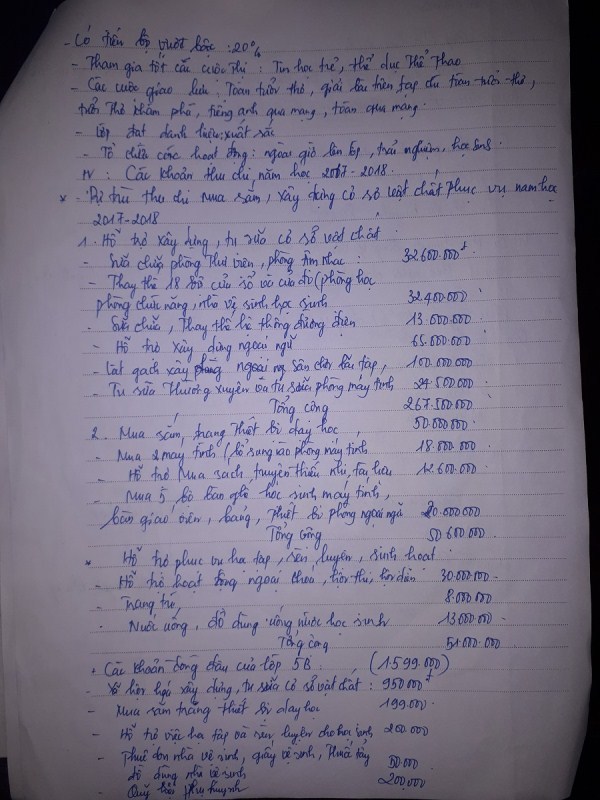 - Có tiến bộ vượt bậc : 20%
- Tham gia tốt các cuộc thi : Tin học trẻ, thể dục Thể Thao
- Các cuộc giao lưu : Toán tuổi thơ, giải bài trên tạp chí toán tuổi thơ,
tuổi thơ khám phá, tiếng anh qua mạng, toán qua mạng.
- Lớp đạt danh hiệu: xuất sắc
- Tổ chức các hoạt động : ngoài giờ lên lớp, trải nghiệm, học
IV : Các khoản thu chi, năm học 2017-2018.
* - Dự trù thu chi mua sắm, xây dựng cơ sở vật chất phục vụ năm học
2017-2018
1. Hỗ trợ xây dựng, tu sửa cơ sở vật chất
- Sửa chữa phòng Thư viên, phòng âm nhạc : 32.600.000đ
- Thay thế 18 bộ cửa sổ và cửa đi (phòng học
phòng chức năng, nhà vệ sinh học sinh 32.400.000
- Sửa chữa, Thay thế hệ thống đường điện 13.000.000
- Hỗ trợ xây dựng ngoại ngữ 65.000.000
- Lát gạch xây ngoài sân chơi bãi tập, 100.000.000
- Tu sửa Thường xuyên và tu sửa phòng máy tính 24.500.000
Tổng cộng 267.500.000
2. Mua sắm, trang thiết bị dạy học, 50.000.000
- Mua 2 máy tính (bổ sung vào phòng máy tính 18.000.000
- Hỗ trợ Mua sách, truyện thiếu nhi, tài liệu 12.600.000
- Mua 5 bộ bàn ghế học sinh máy tính,
bàn giáo viên, bảng, thiết bị phòng ngoại ngữ 20.000.000
Tổng cộng 50 600 000
* Hỗ trợ phục vụ học tập, rèn luyện, sinh hoạt
- Hỗ trợ hoạt động ngoại khóa, hội thi, hội diễn 30.000.000
- Trang trí, 8.000.000
- Nước uống, đồ dùng uống nước học sinh 13000.000
Tổng cộng 51.000.000
+ Các khoản đóng đầu của lớp 5B : (1599.000)
- Xã hội hoá xây dựng, tu sửa cơ sở vật chất : 950000đ
- Mua sắm trang thiết bị dạy học 199.000
- Hỗ trợ việc học tập và rèn luyện cho học sinh 200.000
- Thuê dọn nhà vệ sinh, giấy vệ sinh, thuốc tẩy
đồ dùng nhà vệ sinh 50.000
- Quỹ hội phụ huynh 200.000